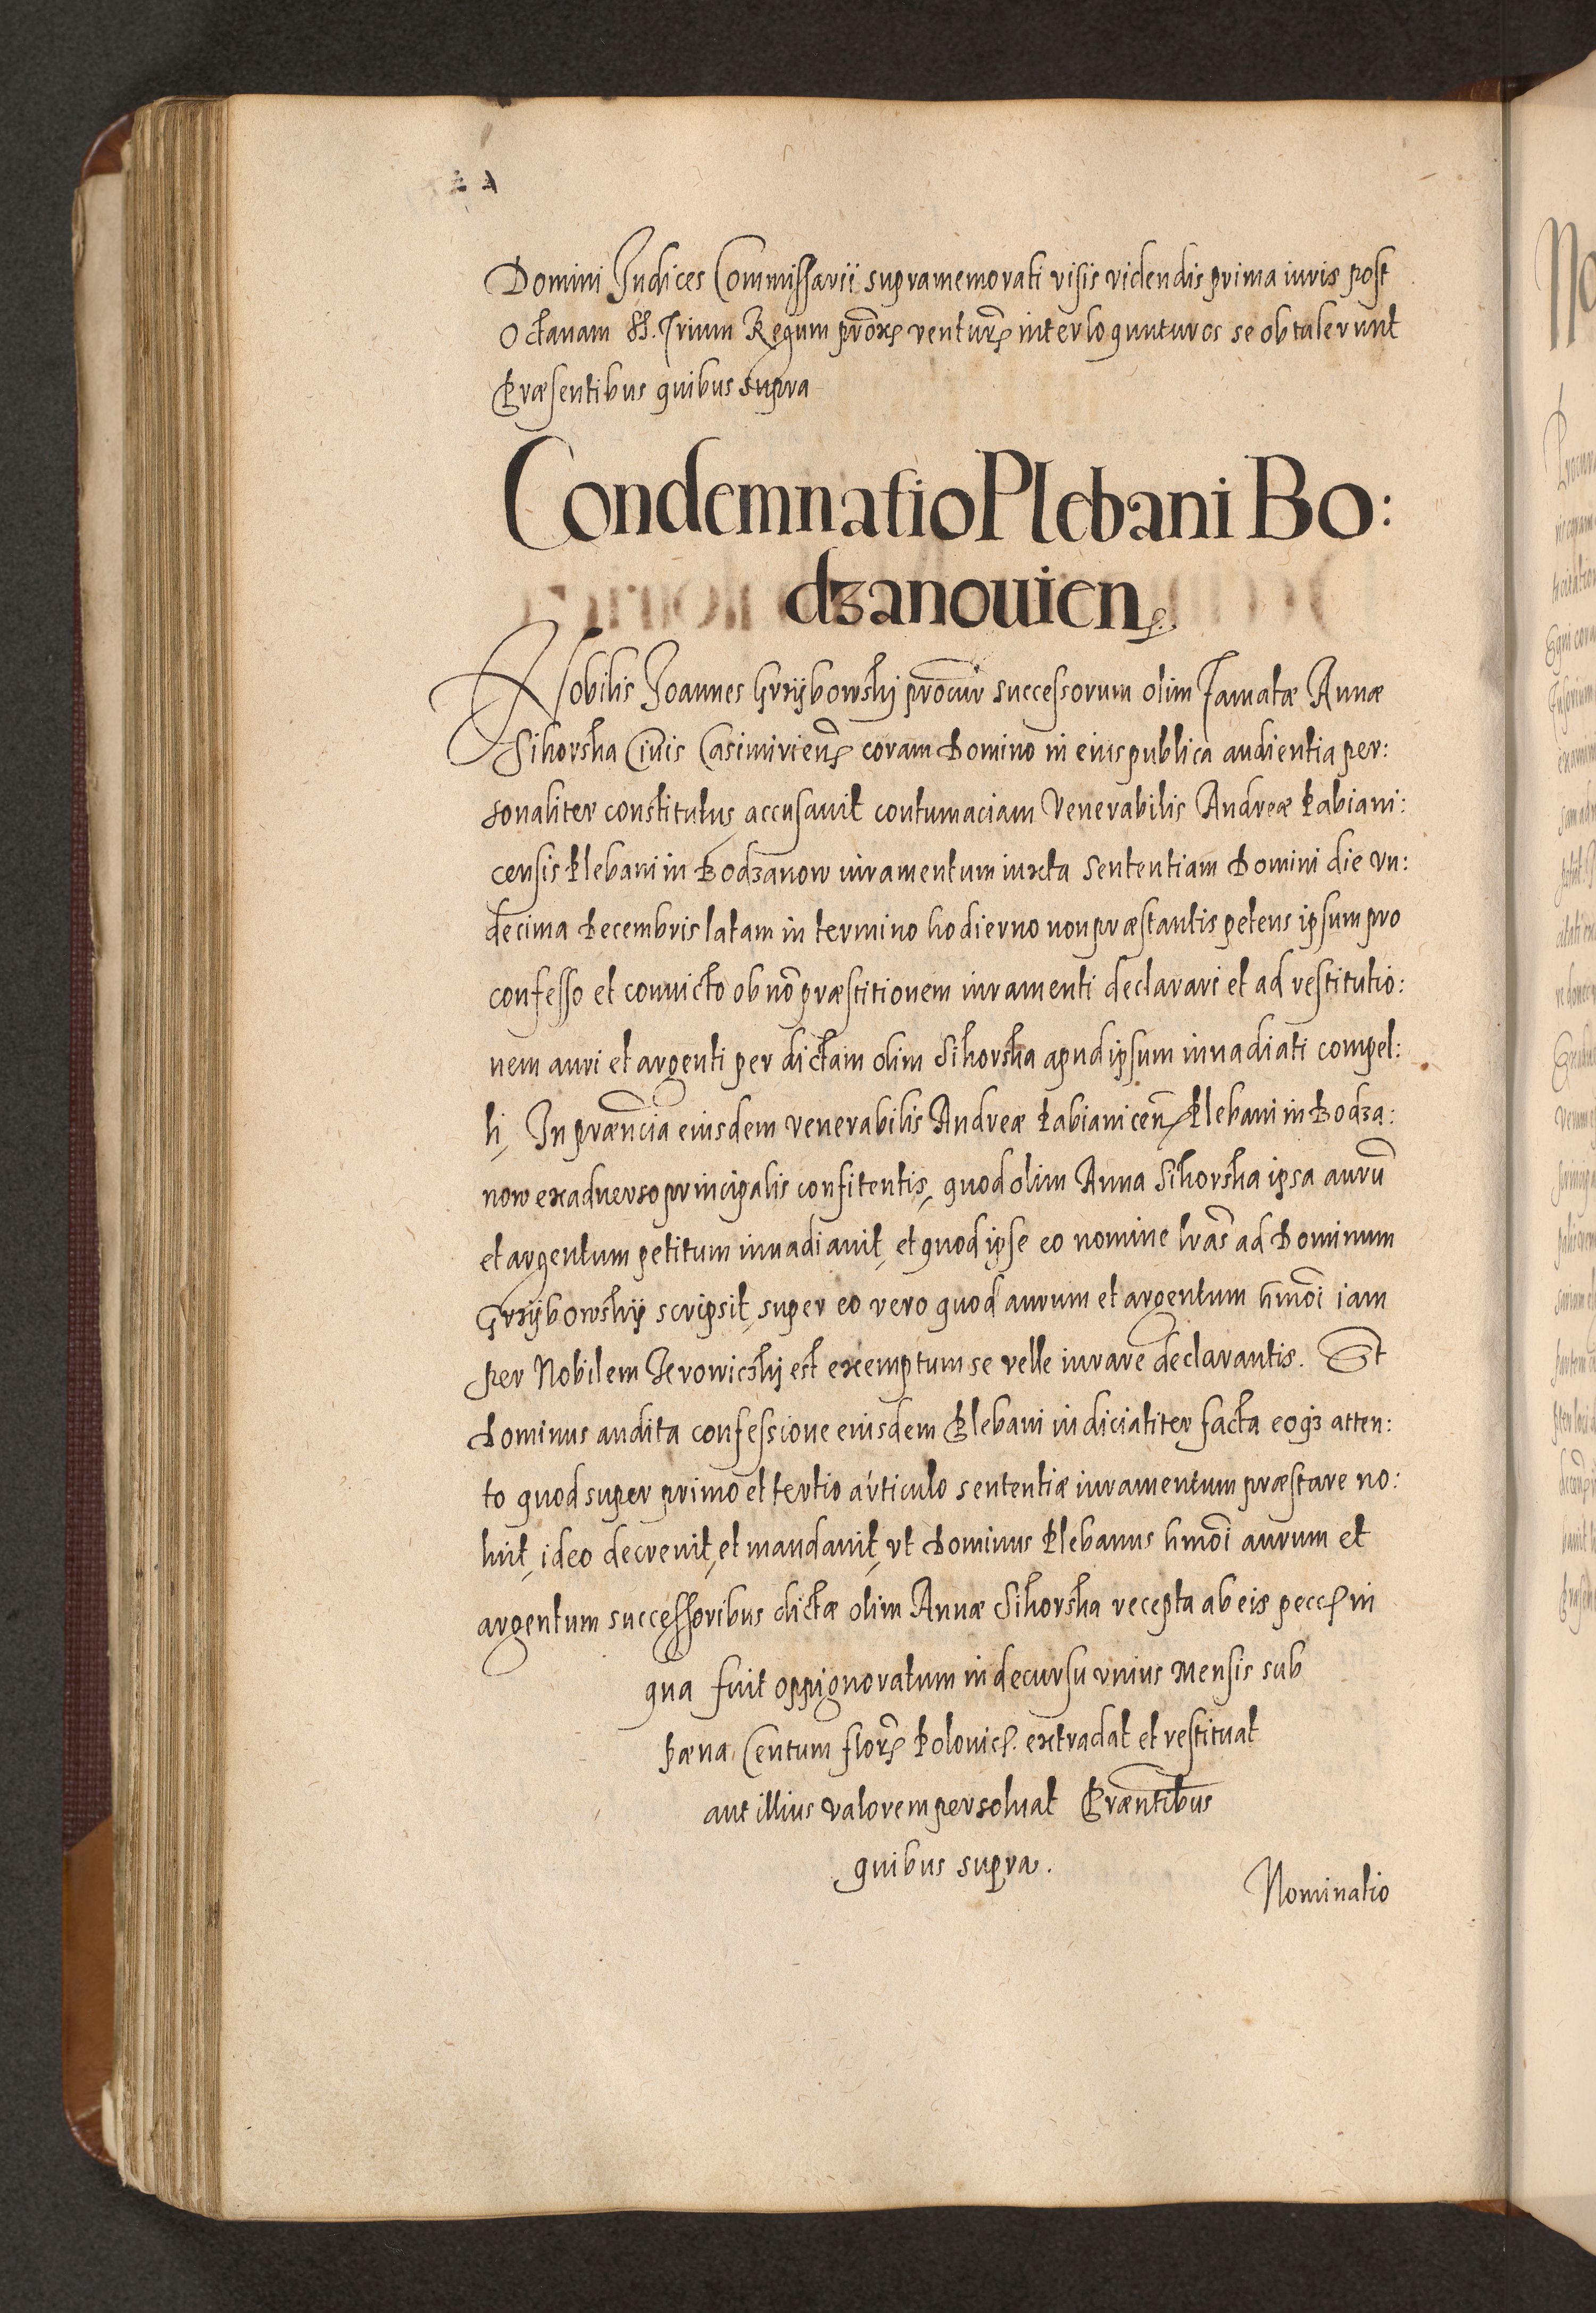 Domini Judices Commissarii supramemorati visis videndis prima iuris post
Octauam SS. Trium Regum proxi ventur interloquuturos se obtulerunt
Præsentibus quibus supra
Condemnatio Plebani Bo:
dzanouien
Nobilis Joannes Grzybowskj procur successorum olim famatæ Annæ
Sikorska Ciuis Casimirien coram Domino in eius publica audientia per:
sonaliter constitutus, accusauit contumaciam Venerabilis Andreæ Pabiani:
censis Plebani in Bodzanow iuramentum iuxta Sententiam Domini die vn:
decima Decembris latam in termino hodierno non præstantis petens ipsum pro
confesso et conuicto ob nō præstitionem iuramenti declarari et ad restitutio:
nem auri et argenti per dictam olim Sikorska apud ipsum inuadiati compel:
li, In præncia eiusdem venerabilis Andreæ Pabianicen Plebani in Bodza:
now ex aduerso principalis confitentis, quod olim Anna Sikorska ipsa aurū
et argentum petitum inuadiauit, et quod ipse eo nomine lras ad Dominum
Grzybowskij scripsit, super eo vero quod aurum et argentum hmōi iam
per Nobilem Jerowicskj est exemptum se velle iurare declarantis. Et
Dominus audita confessione eiusdem Plebani iudicialiter facta eoqz atten:
to quod super primo et tertio articulo sententiæ iuramentum præstare no:
luit, ideo decreuit, et mandauit, vt Dominus Plebanus hmōi aurum et
argentum successoribus dictæ olim Annæ Sikorska recepta ab eis pecc in
qua fuit oppignoratum in decursu vnius Mensis sub
pæna Centum flor Polonic. extradat et restituat
aut illius valorem persoluat Præntibus
quibus supra.
Nominatio